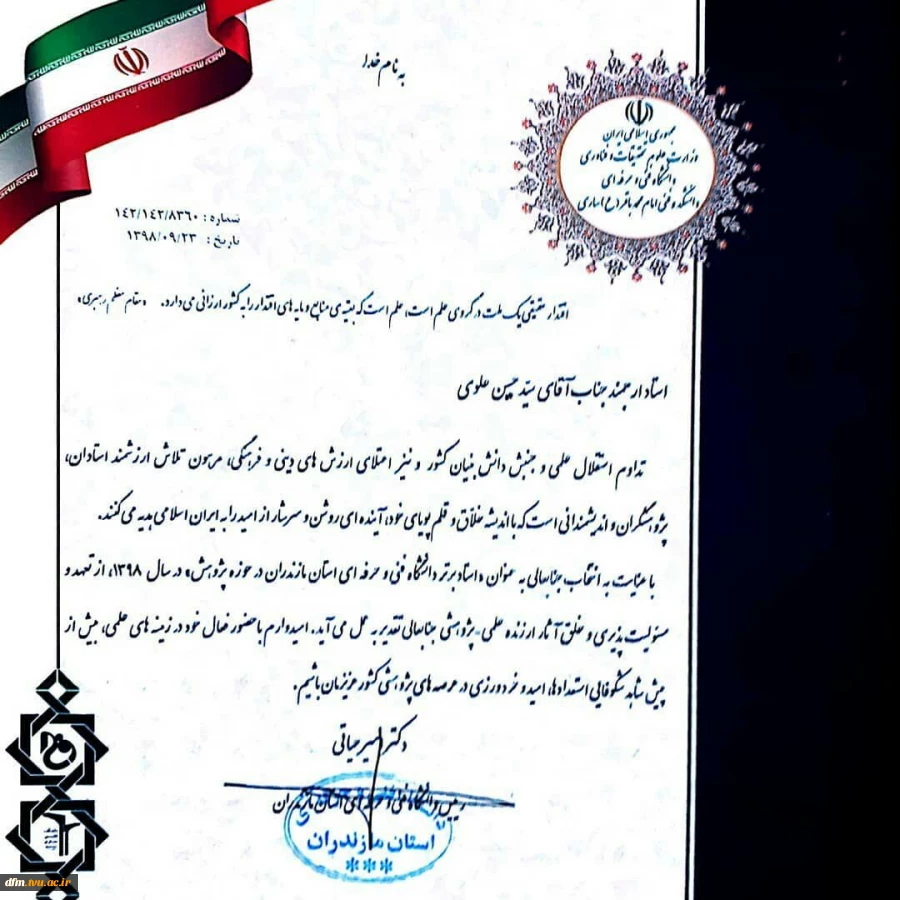 به نام خدا
جمهوری اسلامی ایران
وزارت علوم تحقیقات و فناوری
دانشگاه فنی و حرفه ای
دانشکده فنی امام محمد باقر (ع) ساری
شماره : ۱۴۲/۱۴۲/۸۳۶۰
تاریخ : ۱۳۹۸/۰۹/۲۳
اقتدار حقیقی یک ملت در گروی علم است، علم است که بقیه ی منابع و مایه های اقتدار را به کشور ارزانی می دارد. «مقام معظم رهبری»
استاد ارجمند جناب آقای سیّد حسن علوی
تداوم استقلال علمی و جنبش دانش بنیان کشور و نیز اعتلای ارزش های دینی و فرهنگی، مرهون تلاش ارزشمند استادان،
پژوهشگران و اندیشمندانی است که با اندیشه خلاّق و قلم پویای خود، آینده ای روشن و سرشار از امید را به ایران اسلامی هدیه می کنند.
با عنایت به انتخاب جنابعالی به عنوان «استاد برتر دانشگاه فنی و حرفه ای استان مازندران در حوزه پژوهش» در سال ۱۳۹۸، از تعهد و
مسئولیت پذیری و خلق آثار ارزنده علمی-پژوهشی جنابعالی تقدیر به عمل می آید. امیدوارم با حضور فعال خود در زمینه های علمی، بیش از
پیش شاهد شکوفایی استعدادها، امید و خردورزی در عرصه های پژوهشی کشور عزیزمان باشیم.
دکتر امیر حیاتی
رییس دانشگاه فنی و حرفه ای استان مازندران
استان مازندران
dfm.tvu.ac.ir